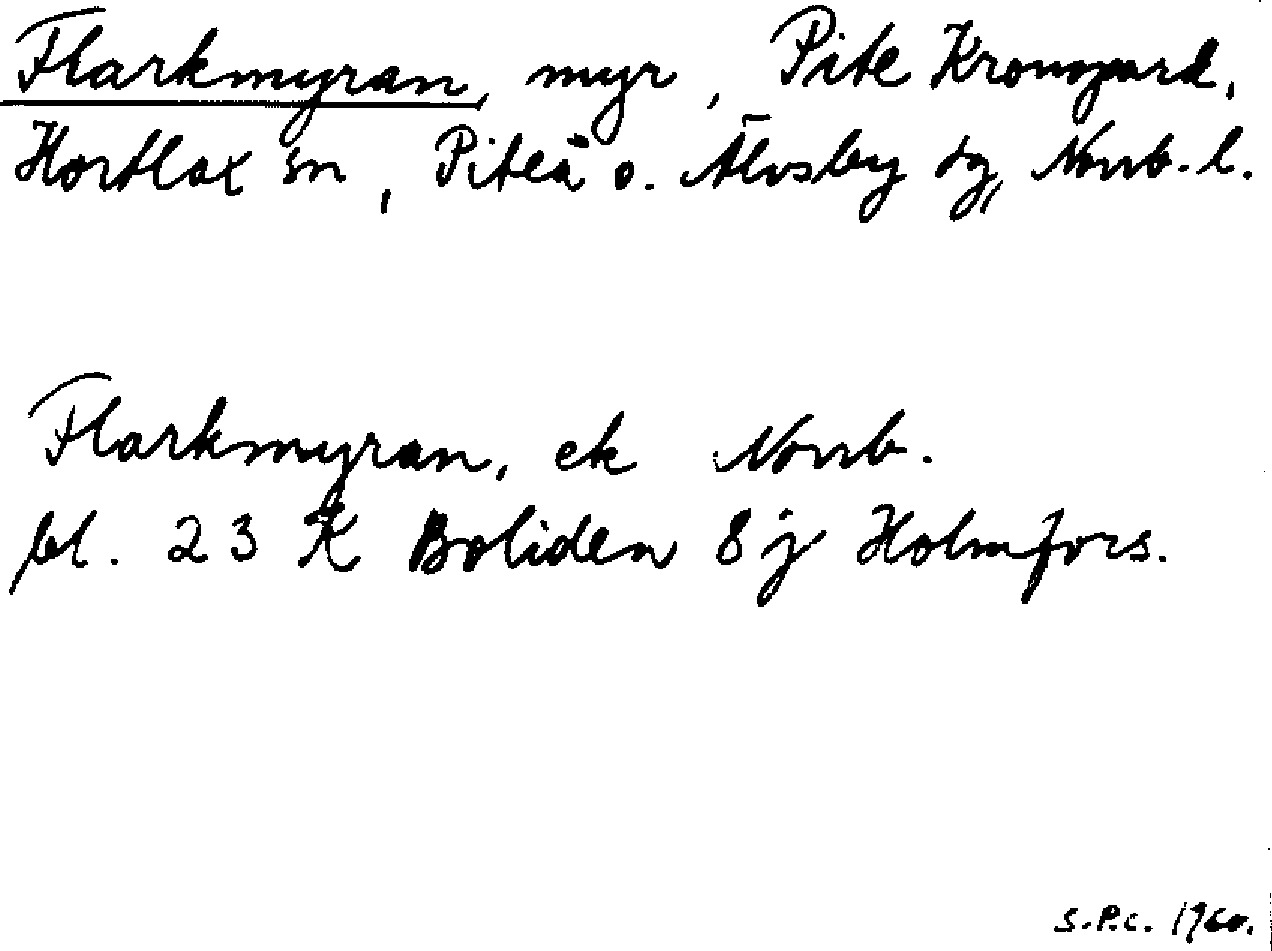 Flarkmyran, myr, Pite Kronopark,
Hortlax sn, Piteå o. Älvsby tg, Norrb. l.
Flarkmyran, ek Norrb.
bl. 23 K Boliden 8 j Holmfors.
S.P.C. 1960.